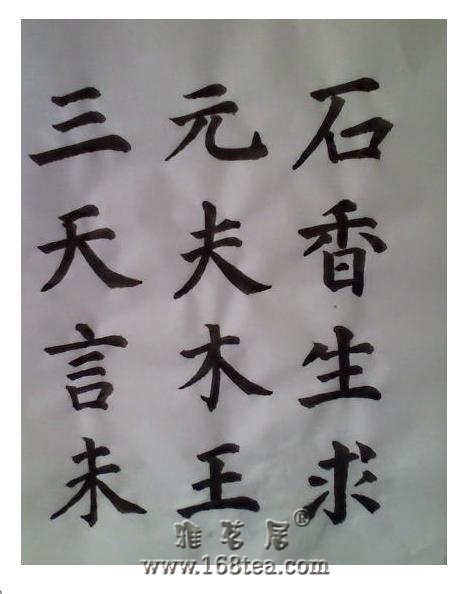 石香生求
元夫木王
三天言未
雅茗居®
www.168tea.com